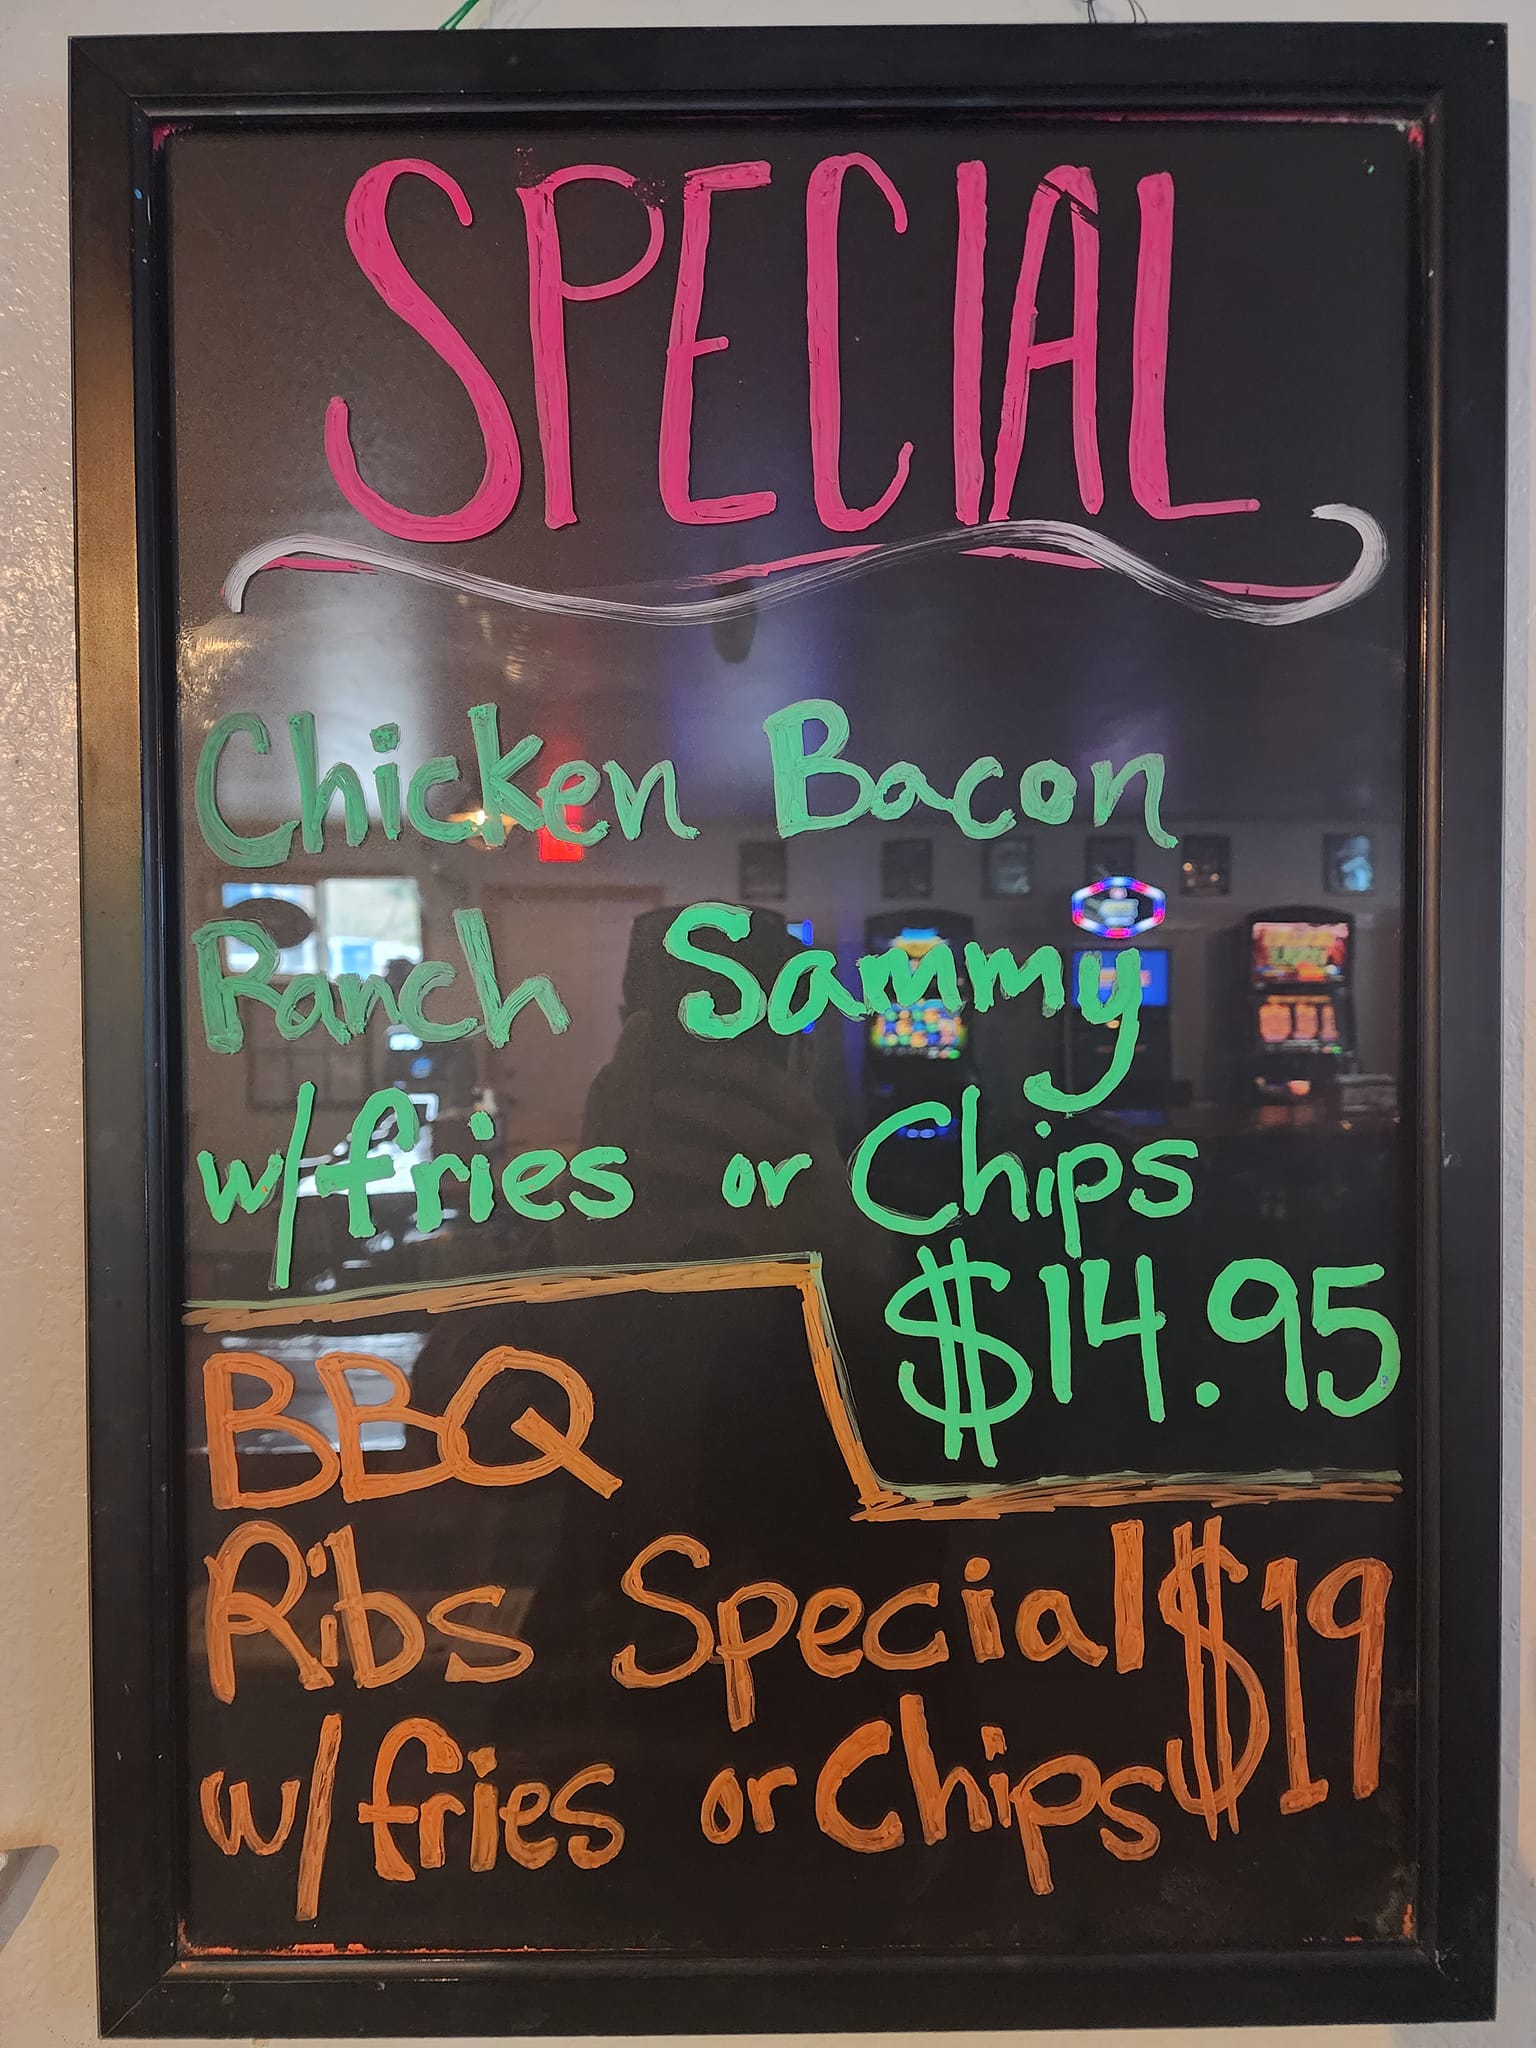 SPECIAL
Chicken Bacon
Ranch Sammy
w/fries or Chips
$14.95
BBQ
Ribs Special $19
w/fries or Chips